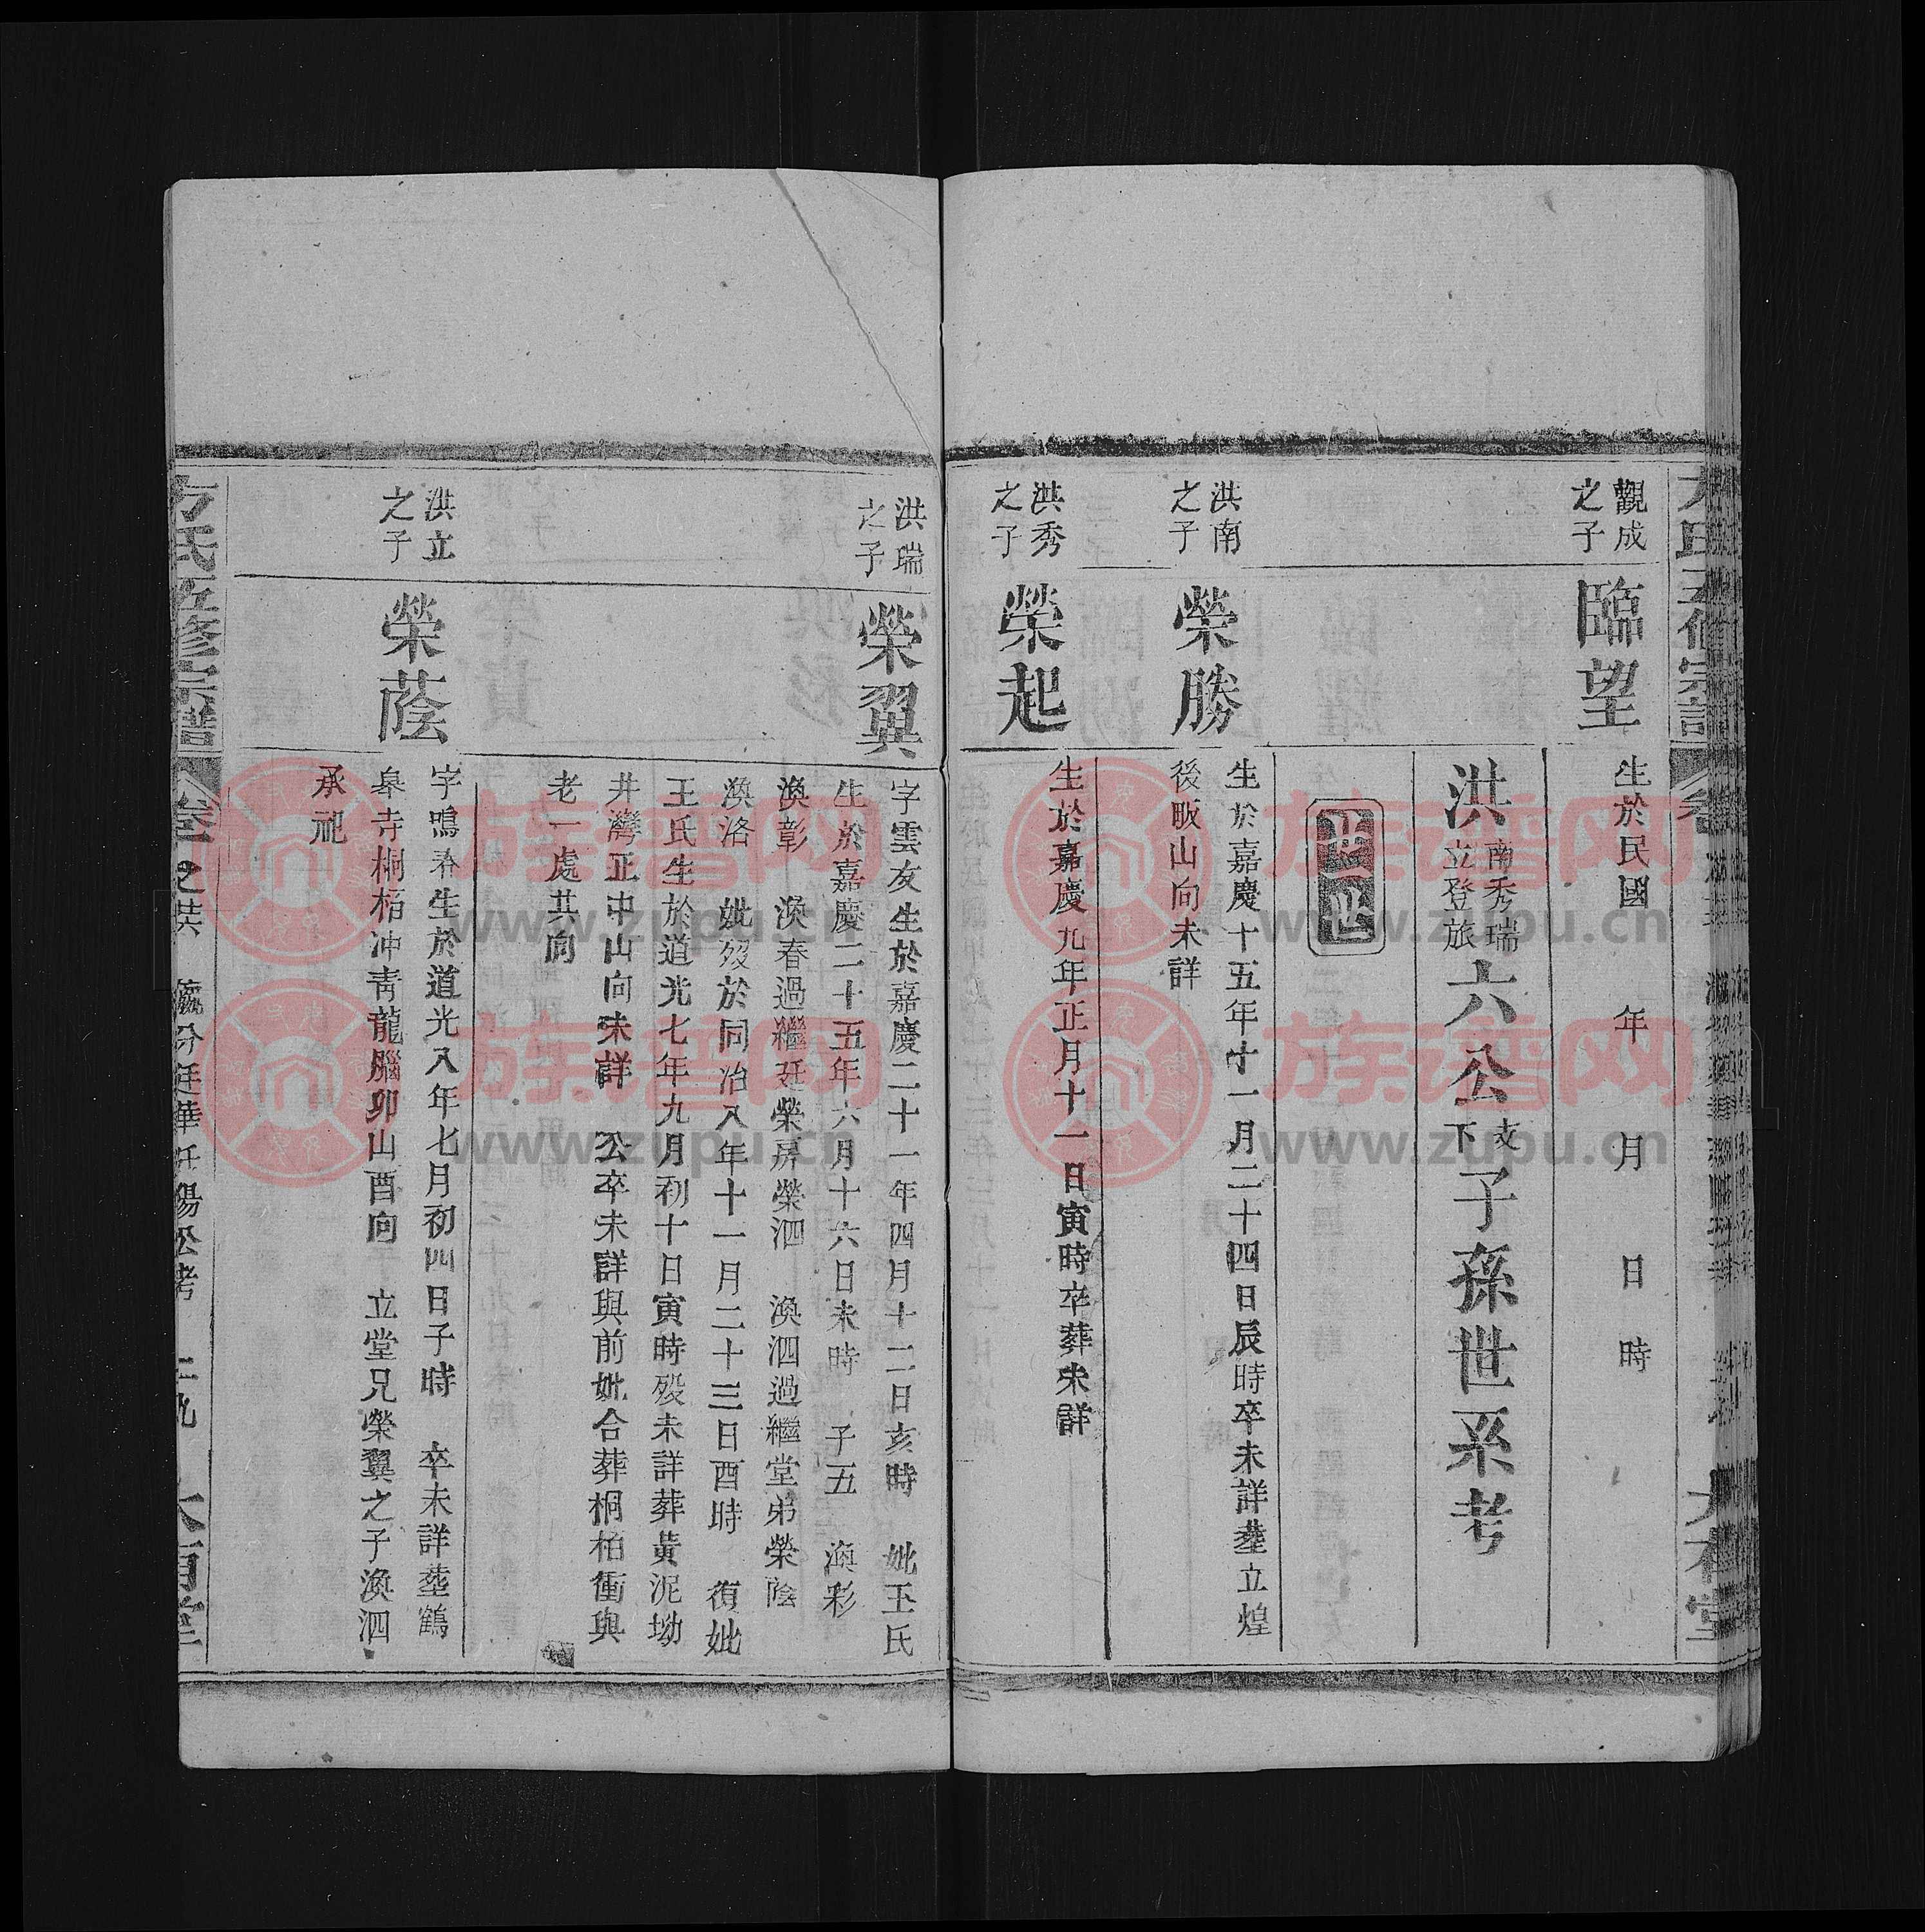 觀成
之子
臨望
生於民國 年 月 日 時
洪
南秀瑞
立登旅
六公
支
下
子孫世系考
洪南
之子
榮勝
生於嘉慶十五年十一月二十四日辰時卒未詳塟立煌
後畈山向未詳
洪秀
之子
榮起
生於嘉慶九年正月十一日寅時卒葬未詳
洪瑞
之子
榮翼
字雲友生於嘉慶二十一年四月十二日亥時 妣王氏
生於嘉慶二十五年六月十六日未時 子五 渙彩
渙彰 渙春過繼廷榮房榮泗 渙泗過繼堂弟榮蔭
渙洛 妣歿於同治八年十一月二十三日酉時 復妣
王氏生於道光七年九月初十日寅時歿未詳葬黃泥坳
井灣正中山向未詳 公卒未詳與前妣合葬桐柏衝與
老一處共向
洪立
之子
榮蔭
字鳴喬生於道光八年七月初四日子時 卒未詳塟鶴
皋寺桐栢冲青龍腦卯山酉向 立堂兄榮翼之子渙泗
承祀
方氏五修宗譜
大有堂
族谱网
www.zupu.cn
族谱网
www.zupu.cn
族谱网
www.zupu.cn
族谱网
www.zupu.cn